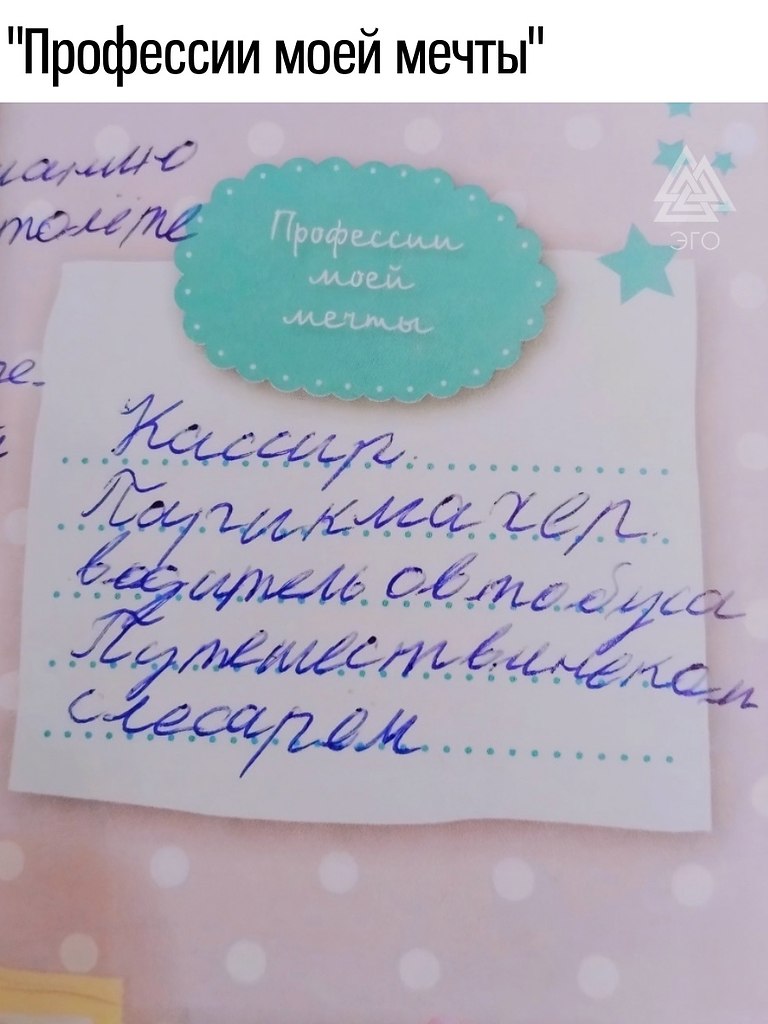 "Профессии моей мечты"
ЭГО
Профессии
моей
мечты
Кассир
Парикмахер
водитель овтобуса
Путешественником
слесарем